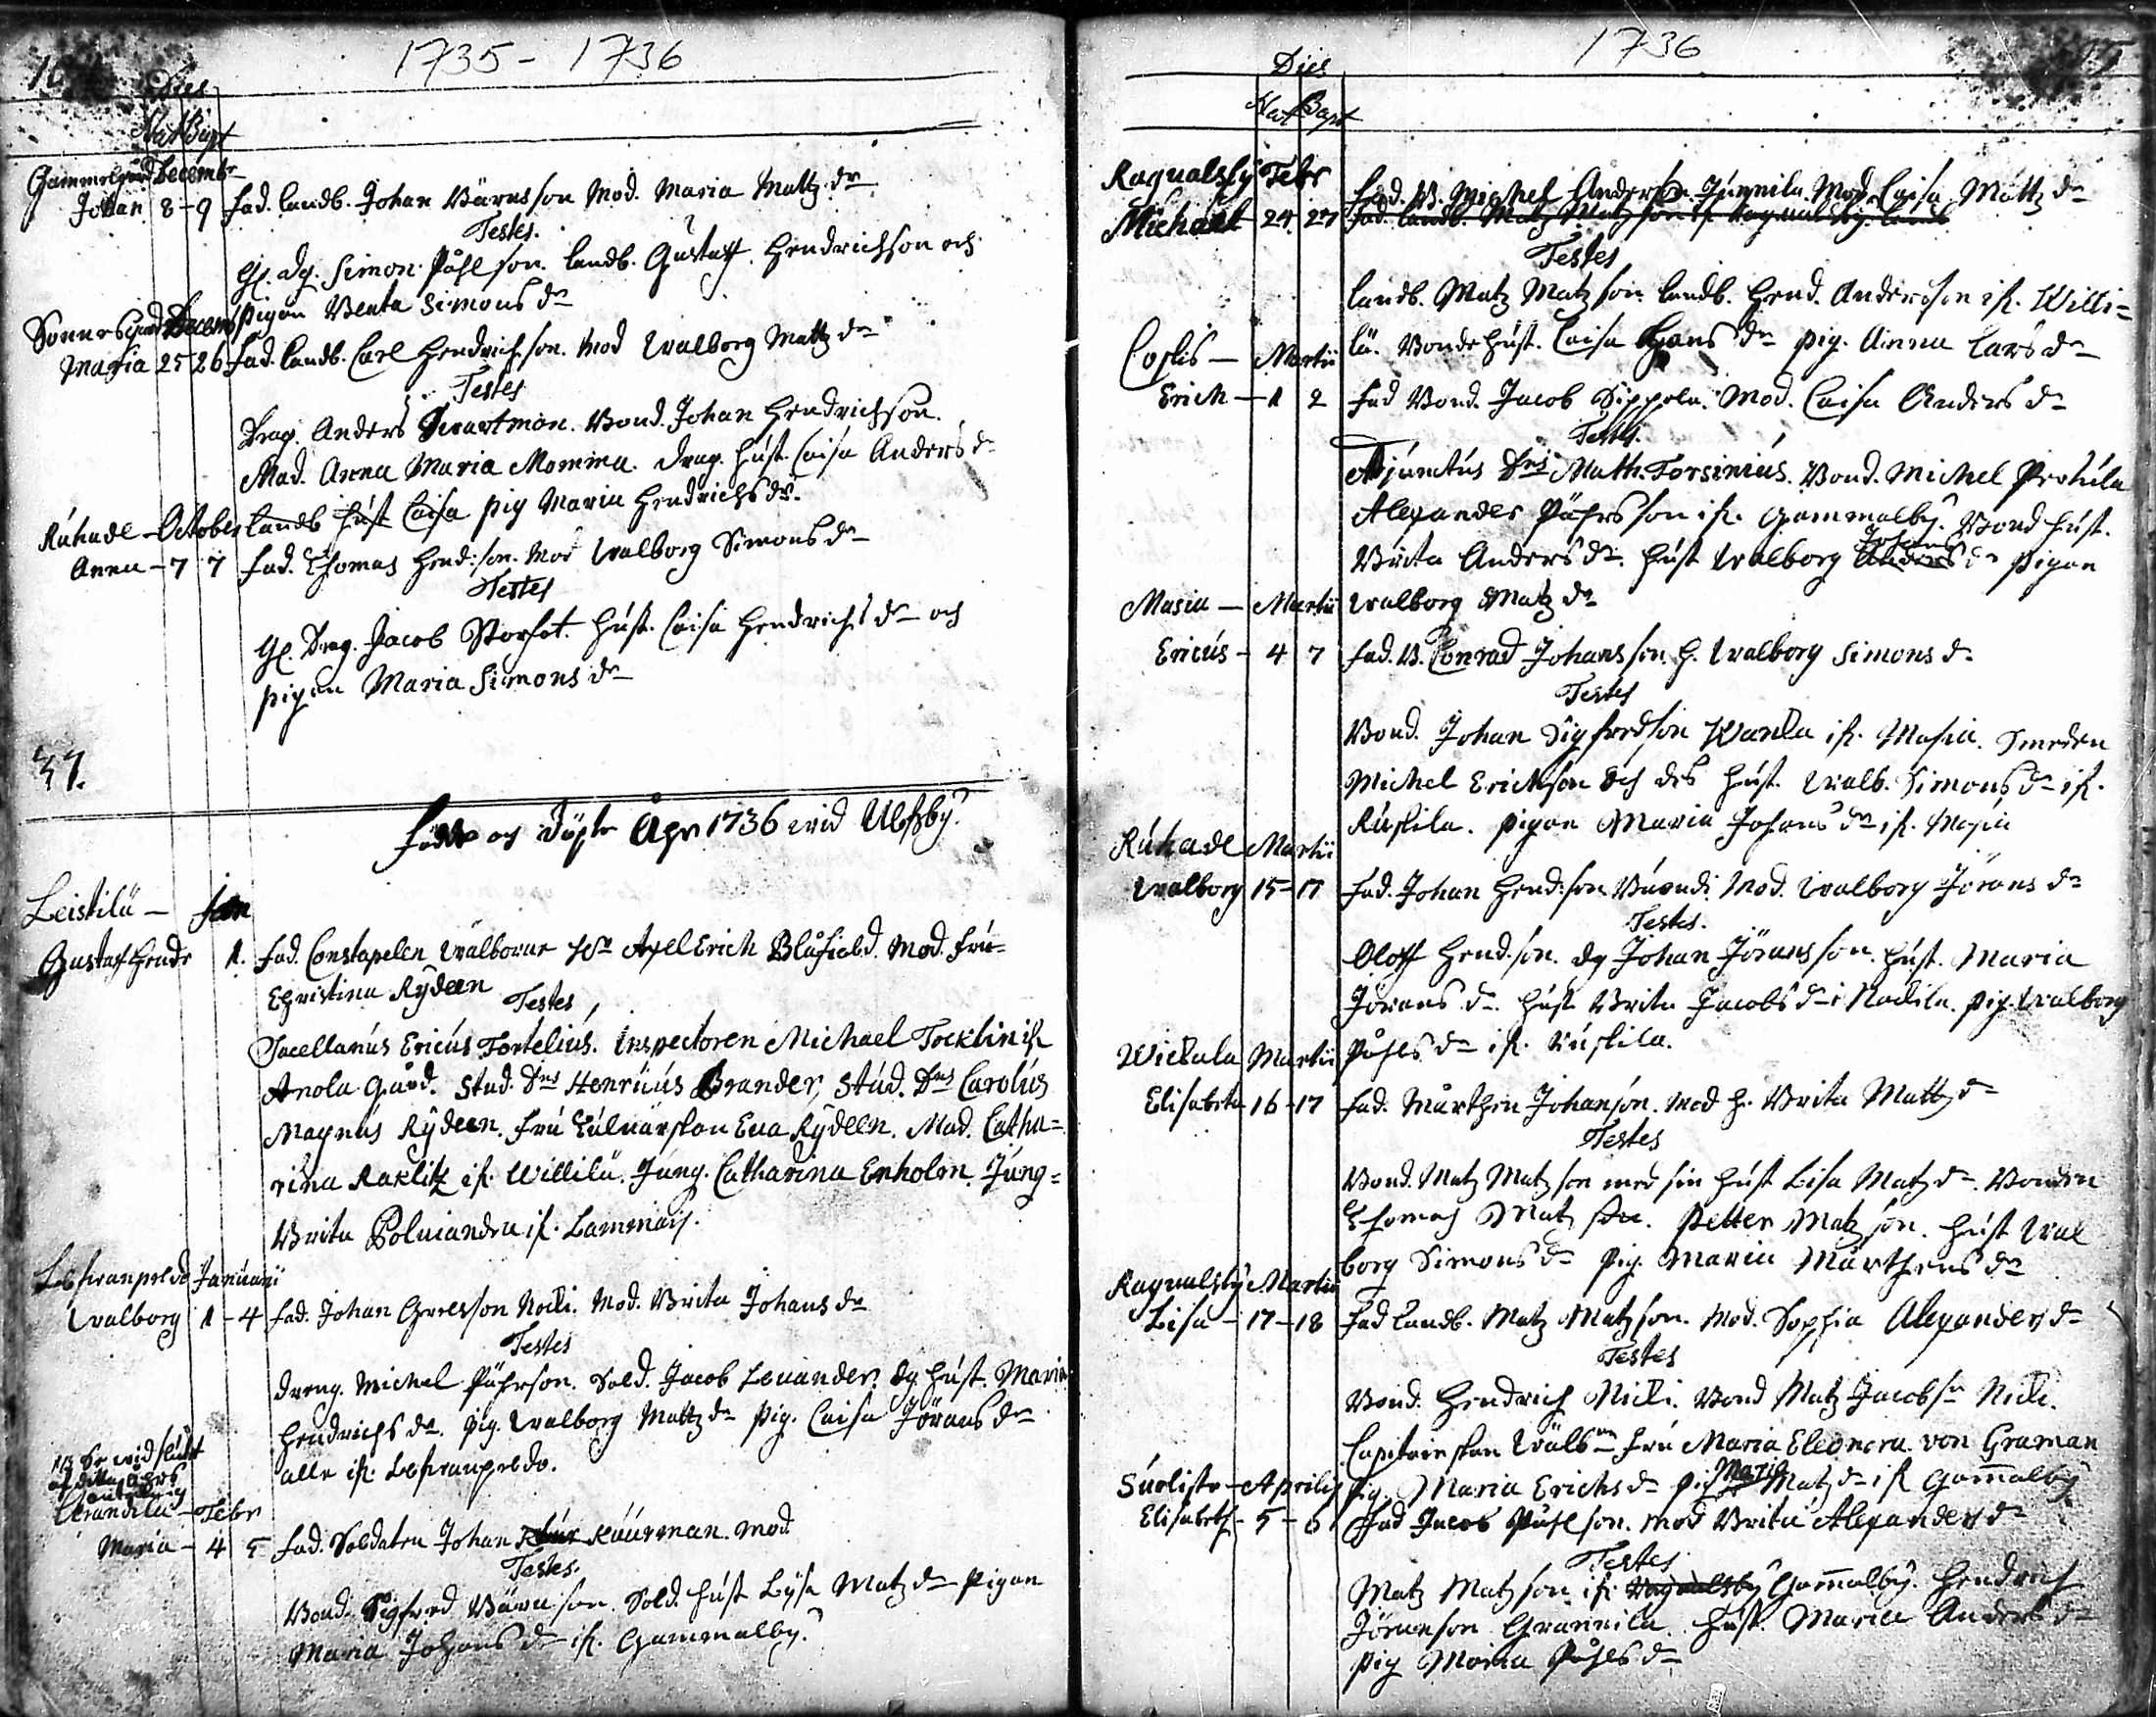 1735 - 1736
Dies
Nat Bapt
Gammelgård Decembr
Johan 8-9 fad. landb. Johan Bärnsson Mod. Maria Mattz dr
Testes.
Gl. dg. Simon Påhlson. landb. Gustaff Hendrichson och
pigan Beata Simons dr
Sonnäsgård Decemb
Maria 25 26 fad. landb. Carl Hendrichson. Mod Walborg Mattz dr
Testes
Drag. Anders Swartman. Bond. Johan Hendrichson.
Mad. Anna Maria Momma. drag. hust. Caisa Anders dr
landb hust Caisa pig Maria Hendrichs dr.
Ruhade - October
Anna - 7 7 fad. Thomas Hend:son. Mod Walborg Simons dr
Testes
Gl. Drag. Jacob Storfot. hust. Caisa Hendrichs dr och
pigan Maria Simons dr
37.
födde och döpte Åhr 1736 wid Ulfsby.
Leistilä - Jan
Gustaf Hendr 1. fad. Constapelen wälborne Hr Axell Erich Blåfield. Mod. fru
Christina Rydeen
Testes
Sacellanus Ericus Fortelius. Inspectoren Michael Tocklin ifr.
Anola Gård. Stud. Dns Henricus Brander, Stud. Dns Carolus
Magnus Rydeen. fru Eva Rydeen. Mad. Catha=
rina Raklitz ifr. Willilä. Jung. Catharina Enholm. Jung=
Brita Polviander ifr. Lammais.
Januarii
Walborg 1-4 fad. Johan Grelsson. Mod. Brita Johans dr
Testes
dreng. Michel Påhrson. Sold. Jacob Levander. dg hust. Maria
Hendrichs dr. pig. Walborg Mattz dr pig. Caisa Jörans dr
alla ifr.
Se wid slutet
af detta åhrs
Febr
Maria - 4 5 fad. Soldaten Johan Kuurman. mod
Testes.
Bond. Sigfred Bärnson. Sold. hust Lisa Matz dr pigan
Maria Johans dr ifr. Gammalby.
1736
Dies
Nat Bapt
Ragualsby Febr
fad. B. Michel Anderson Junnila. Mod. Caisa Mattz dr
Michael 24. 27 fad. landb. Matz Matzson ifr Ragualsby. landb
Testes
landb. Matz Matzson. landb. Hend. Andersson ifr. Willi=
lä. Bonde hust. Caisa Hans dr pig. Anna Lars dr
Martii
Erich - 1 2 fad Bond. Jacob Sippola. Mod. Caisa Anders dr
Testes.
Adjunctus Dns Math. Forsinius. Bond. Michel Prohula
Alexander Påhrsson ifr. Gammalby. Bond hust.
Johans
Brita Anders dr. hust Walborg Anders dr pigan
Walborg Matz dr
Masia - Martii
Ericus - 4 7 fad. B. Conrad Johansson. h. Walborg Simons dr
Testes
Bond. Johan Sigfredson ifr. Masia. Smeden
Michel Erichson och des hust. Walb. Simons dr ifr.
Ruskila. pigan Maria Johans dr ifr. Masia
Ruhade Martii
Walborg 15-17 fad. Johan Hend:son. Mod. Walborg Jörans dr
Testes.
Oloff Hend.son. dg Johan Jöransson. hust. Maria
Jörans dr. hust Brita Jacobs dr i Nackila. pig. Walborg
Påhls dr ifr. Ruskila.
Wickala Martii
Elisabeta 16-17 fad. Mårthen Johanson. Mod h. Brita Mattz dr
Testes
Bond. Matz Matzson med sin hust Lisa Matz dr. Bonden
Thomas Matzson. Petter Matzson. hust Wal
borg Simons dr pig. Maria Mårthens dr
Ragualsby Martii
Lisa - 17-18 fad landb. Matz Matzson. Mod. Sophia Alexanders dr
Testes
Bond. Hendrich Nicki. Bond Matz Jacobsn Nicki.
Capitainskan Wälbne fru Maria Eleonora von Graman
pig. Maria Erichs dr pig Maria Matz dr ifr Gamalby
Suoliste - Aprilis
Elisabeth - 5-6 Fad Jacob Påhlson. mod Brita Alexanders dr
Testes
Matz Matzson ifr. Ragualsby Gamalby. Hendrich
Jöranson Grannila. hust. Maria Anders dr
pig Maria Påhls dr